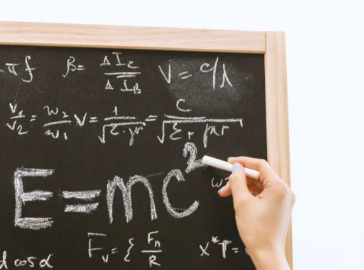 πf β= ΔI₂/ΔI_B ν = c/λ
v₁/v₂ = w₂/w₁ v = 1/√(ε·μr) = c/√(εr·μr)
E=mc²
d cosα Fᵥ = { Fₙ/R x*T =